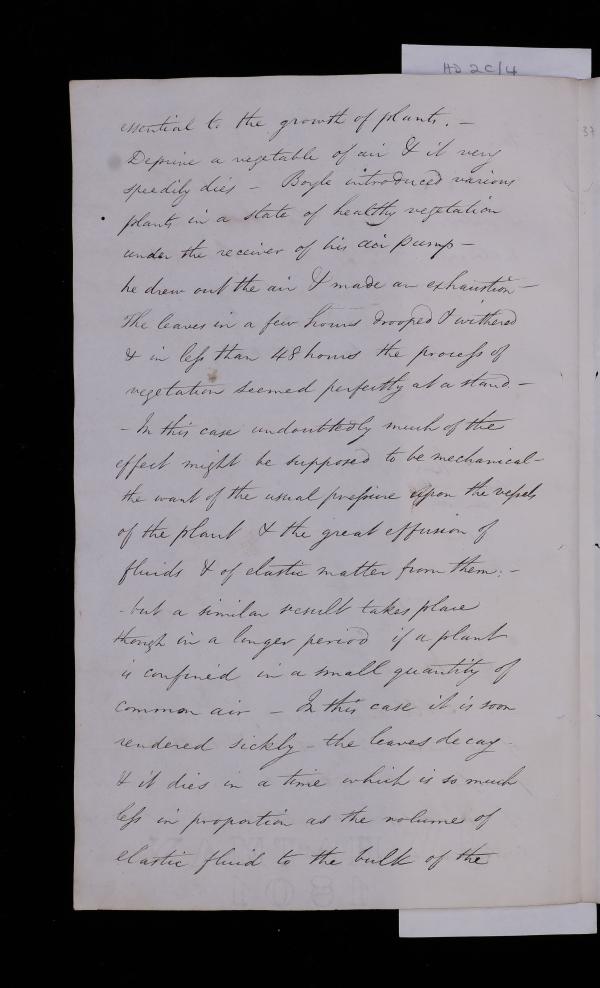 HD 2C/4
37
essential to the growth of plants. —
Deprive a vegetable of air & it very
speedily dies — Boyle introduced various
plants in a state of healthy vegetation
under the receiver of his air pump —
he drew out the air & made an exhaustion —
The leaves in a few hours drooped & withered
& in less than 48 hours the process of
vegetation seemed perfectly at a stand —
- In this case undoubtedly much of the
effect might be supposed to be mechanical -
the want of the usual pressure upon the vessels
of the plant & the great effusion of
fluids & of elastic matter from them: -
- but a similar result takes place
though in a longer period if a plant
is confined in a small quantity of
common air — In this case it is soon
rendered sickly - the leaves decay -
& it dies in a time which is so much
less in proportion as the volume of
elastic fluid to the bulk of the